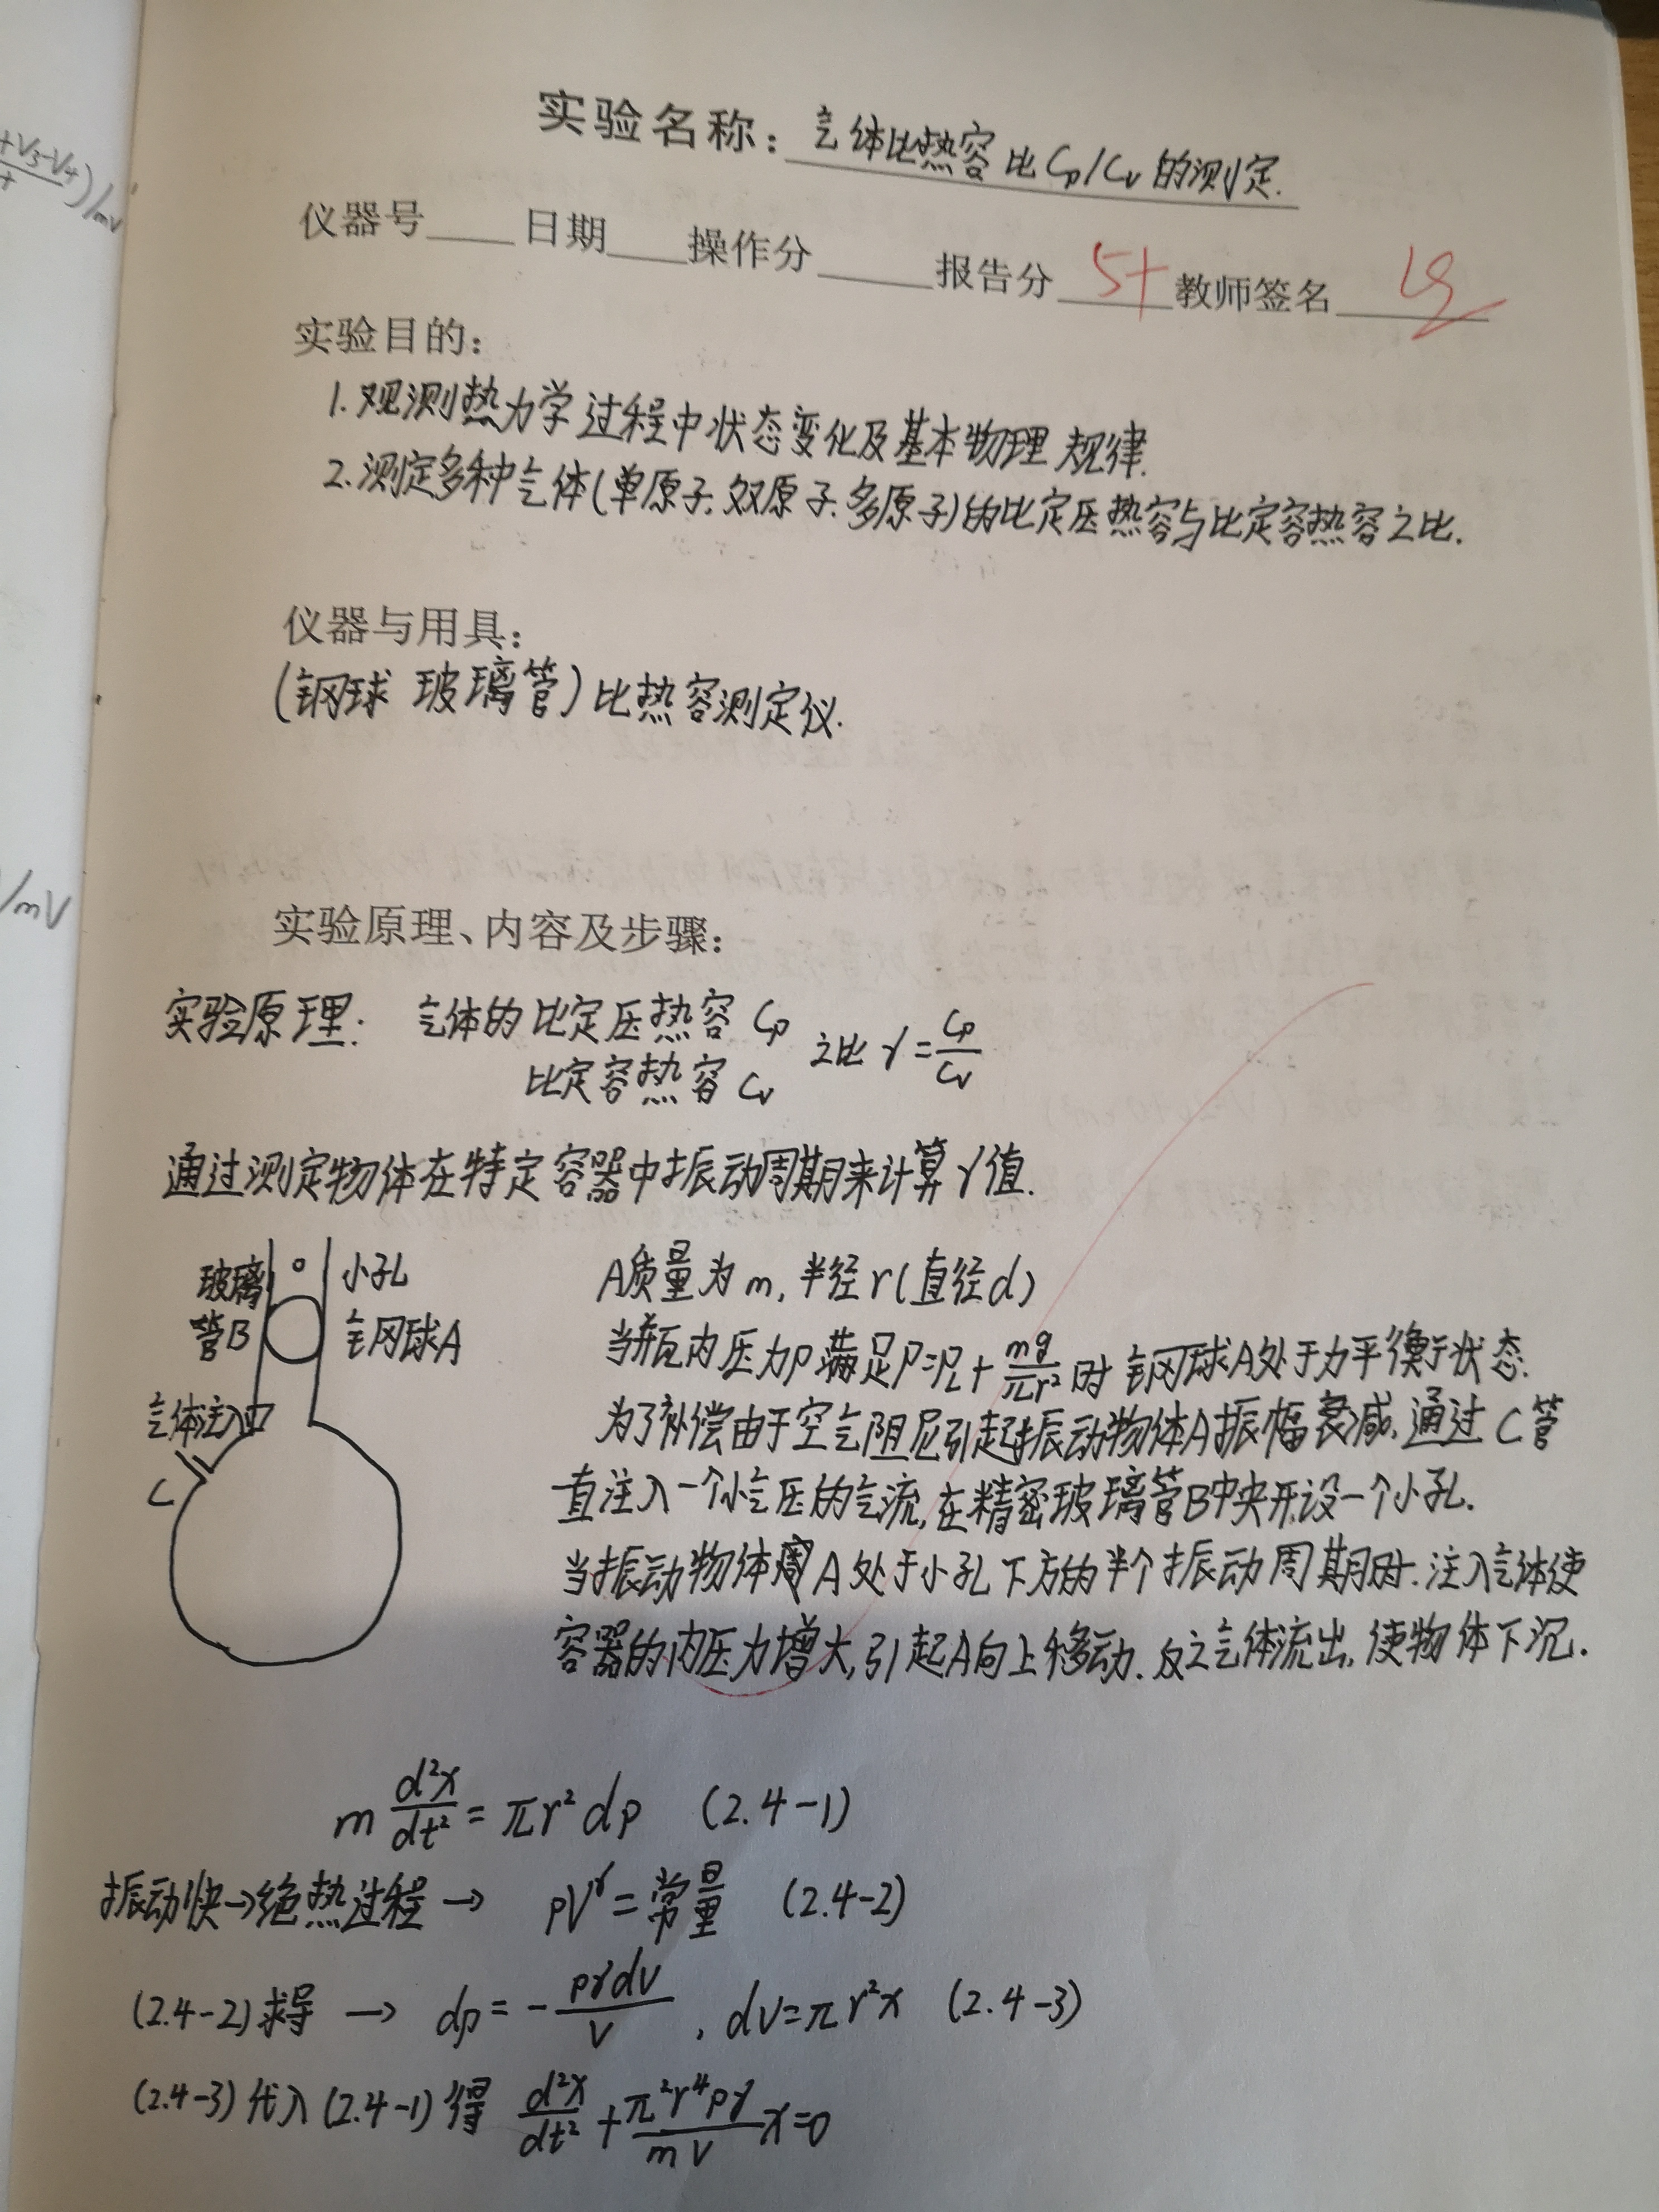 +V3-V4)/mV
/mV
实验名称: 气体比热容比Cp/Cv的测定.
仪器号 日期 操作分 报告分 5+ 教师签名
实验目的:
1.观测热力学过程中状态变化及基本物理规律.
2.测定多种气体(单原子.双原子.多原子)的比定压热容与比定容热容之比.
仪器与用具:
(钢球 玻璃管)比热容测定仪.
实验原理、内容及步骤:
实验原理: 气体的比定压热容Cp
比定容热容Cv 之比γ=Cp/Cv
通过测定物体在特定容器中振动周期来计算γ值.
玻璃管B
小孔
钢球A
气体注入口
C
A质量为m,半径r(直径d)
当瓶内压力P满足P=PL+mg/πr²时 钢球A处于力平衡状态.
为了补偿由于空气阻尼引起振动物体A振幅衰减,通过C管
一直注入一个小气压的气流,在精密玻璃管B中央开设一个小孔.
当振动物体A处于小孔下方的半个振动周期时.注入气体使
容器的内压力增大,引起A向上移动.反之气体流出,使物体下沉.
m d²x/dt² = πr²dp (2.4-1)
振动快→绝热过程→ pV^γ=常量 (2.4-2)
(2.4-2)求导 → dp=-pγdV/V , dV=πr²x (2.4-3)
(2.4-3)代入(2.4-1)得 d²x/dt²+π²r⁴pγ/mV x=0